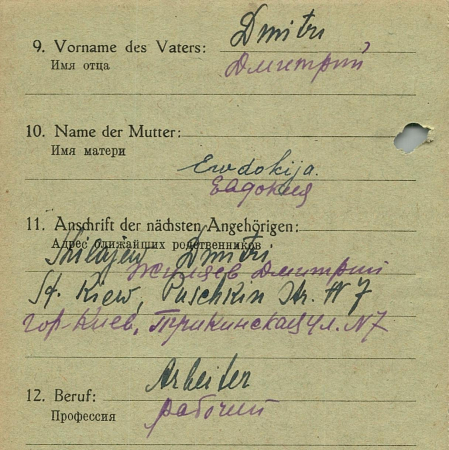 9. Vorname des Vaters: Dmitri
Имя отца Дмитрий
10. Name der Mutter:
Имя матери
Ewdokija.
Евдокия
11. Anschrift der nächsten Angehörigen:
Адрес ближайших родственников
Shiljajew Dmitri
Жиляев Дмитрий
St. Kiew, Puschkin Str. N 7
гор Киев, ул. N7
Arbeiter
12. Beruf:
Профессия рабочий